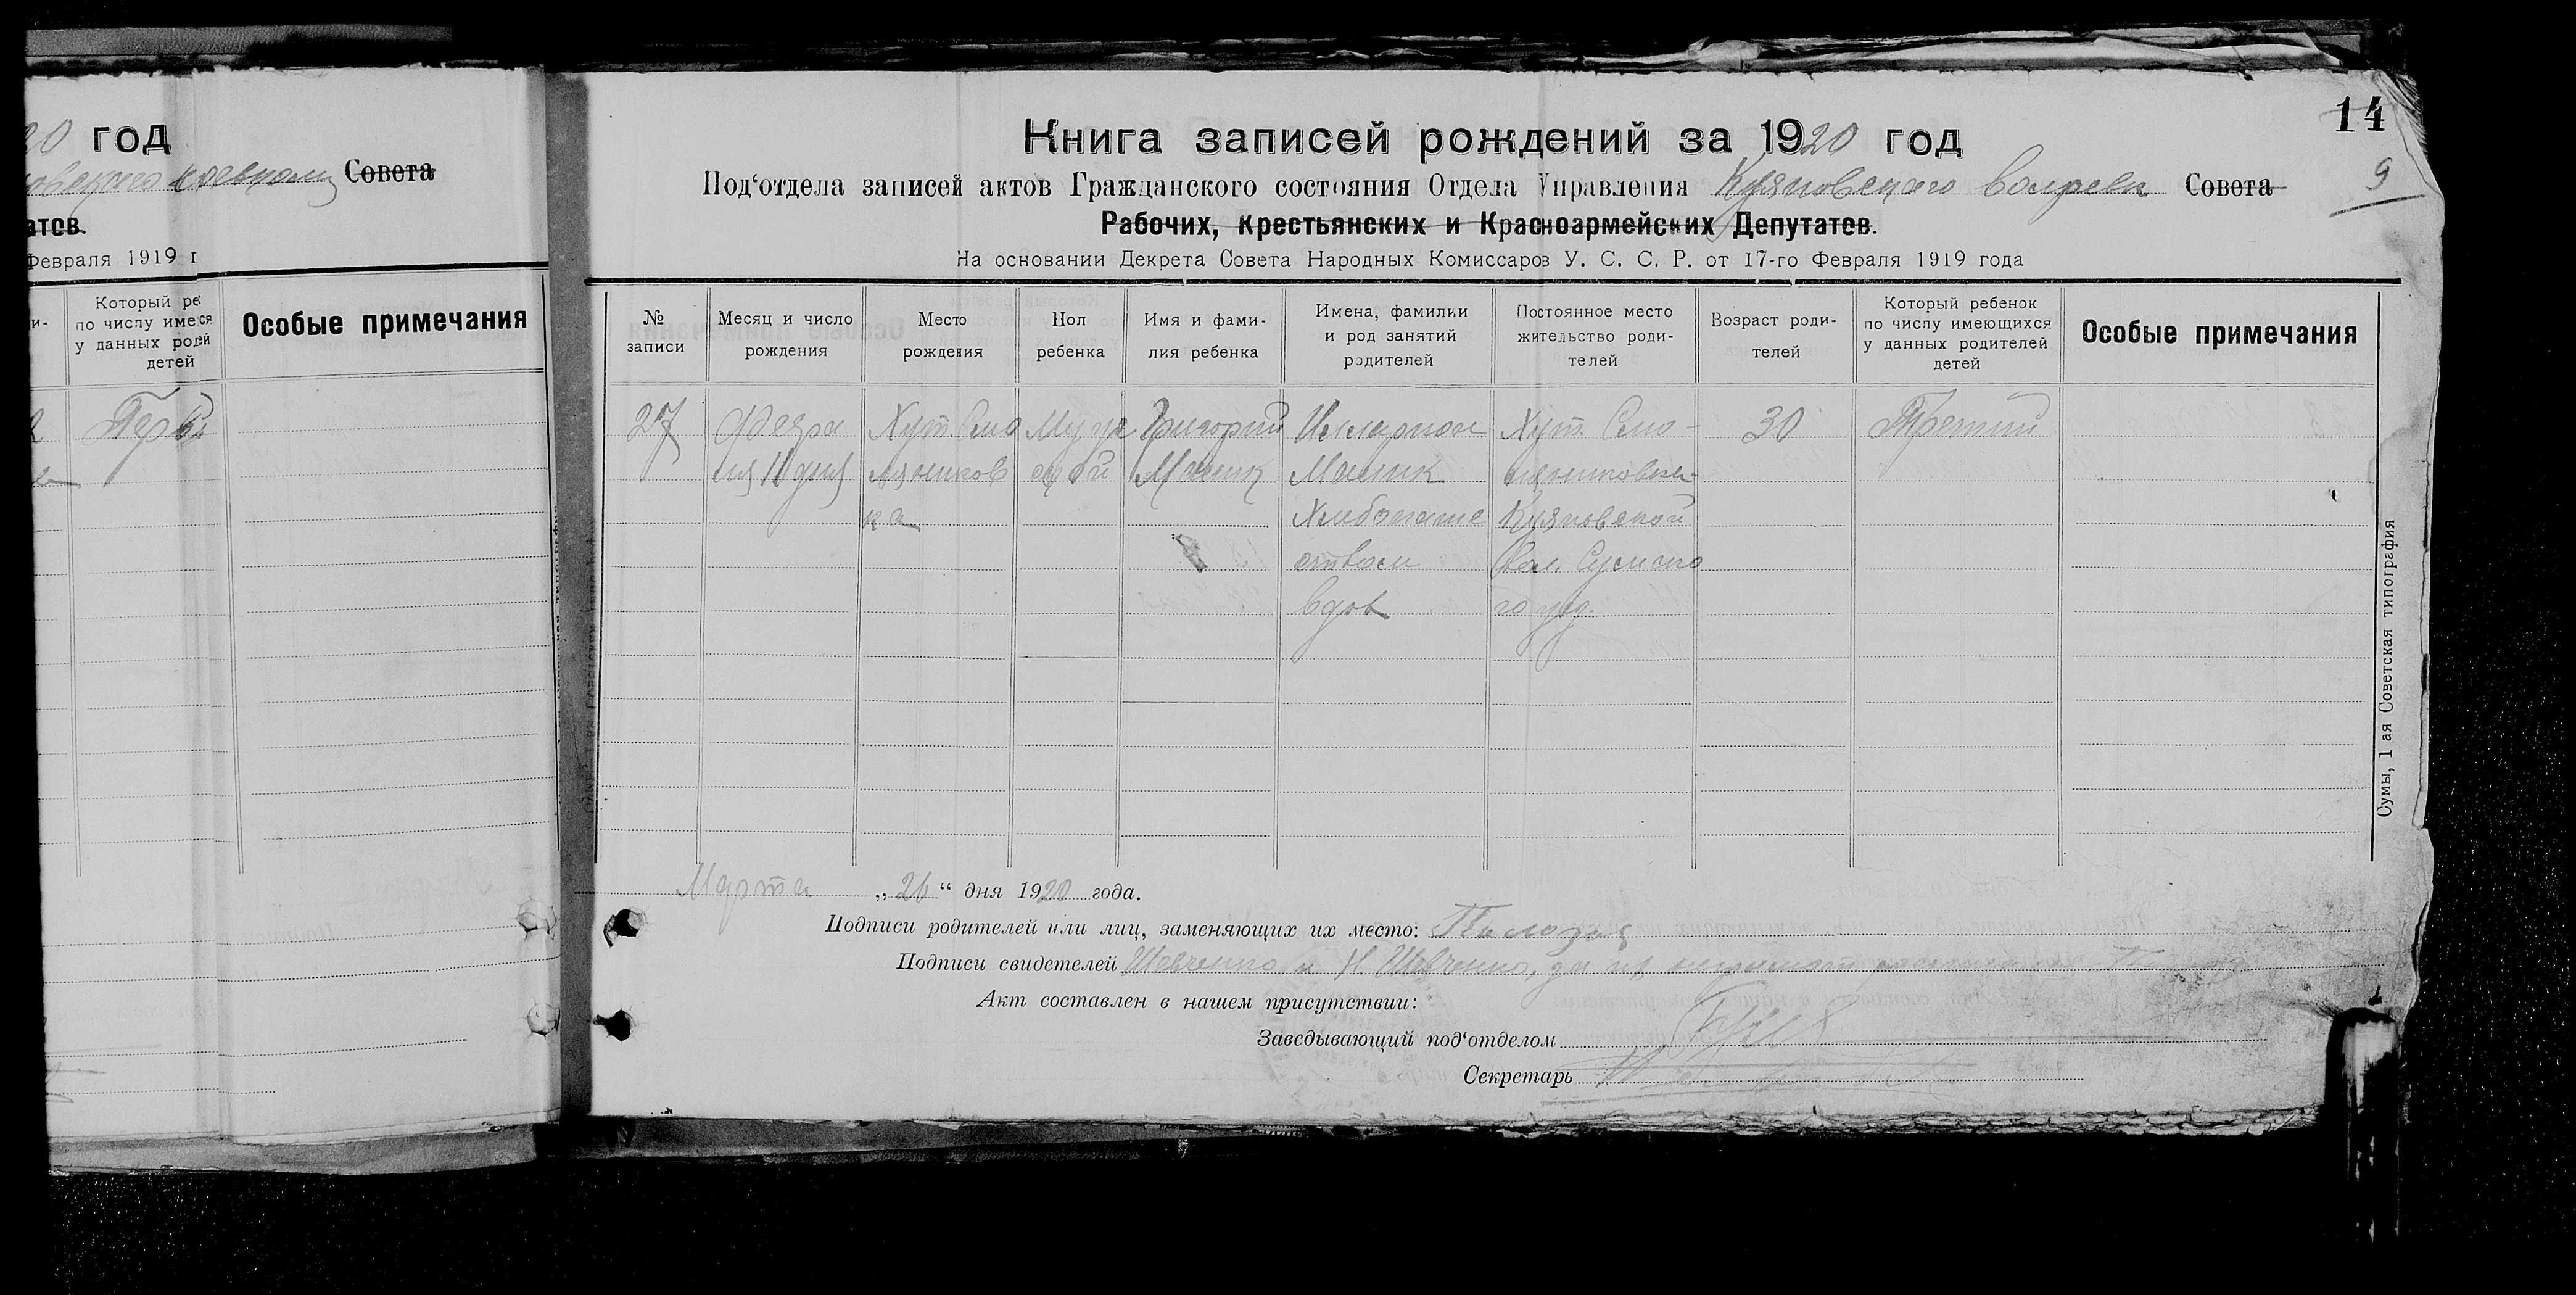 20 год
Совета
атов.
Февраля 1919 г
Который ре
по числу имеся
у данных родй
детей
Особые примечания
14
9
Книга записей рождений за 1920 год
Под‘отдела записей актов Гражданского состояния Отдела Управления Совета
Рабочих, Крестьянских и Красноармейских Депутатов.
На основании Декрета Совета Народных Комиссаров У. С. С. Р. от 17-го Февраля 1919 года
№ записи
Месяц и число рождения
Место рождения
Пол ребенка
Имя и фами-
лия ребенка
Имена, фамилии
и род занятий
родителей
Постоянное место
жительство роди-
телей
Возраст роди-
телей
Который ребенок
по числу имеющихся
у данных родителей
детей
Особые примечания
27
Февра
ля 11 дня
Хут. Смо
ляников
ка
Муж
ской
Григорий
Малик
Илларион
Малик
Хлебопаше
ством
вдов
Хут. Смо-
Вол. Сумско
го уезд.
30
Третий
Марта „26“ дня 1920 года.
Подписи родителей или лиц, заменяющих их место:
Подписи свидетелей Шевченко и Н. Шевченко,
Акт составлен в нашем присутствии:
Заведывающий под‘отделом
Секретарь
Сумы, 1 ая Советская типография